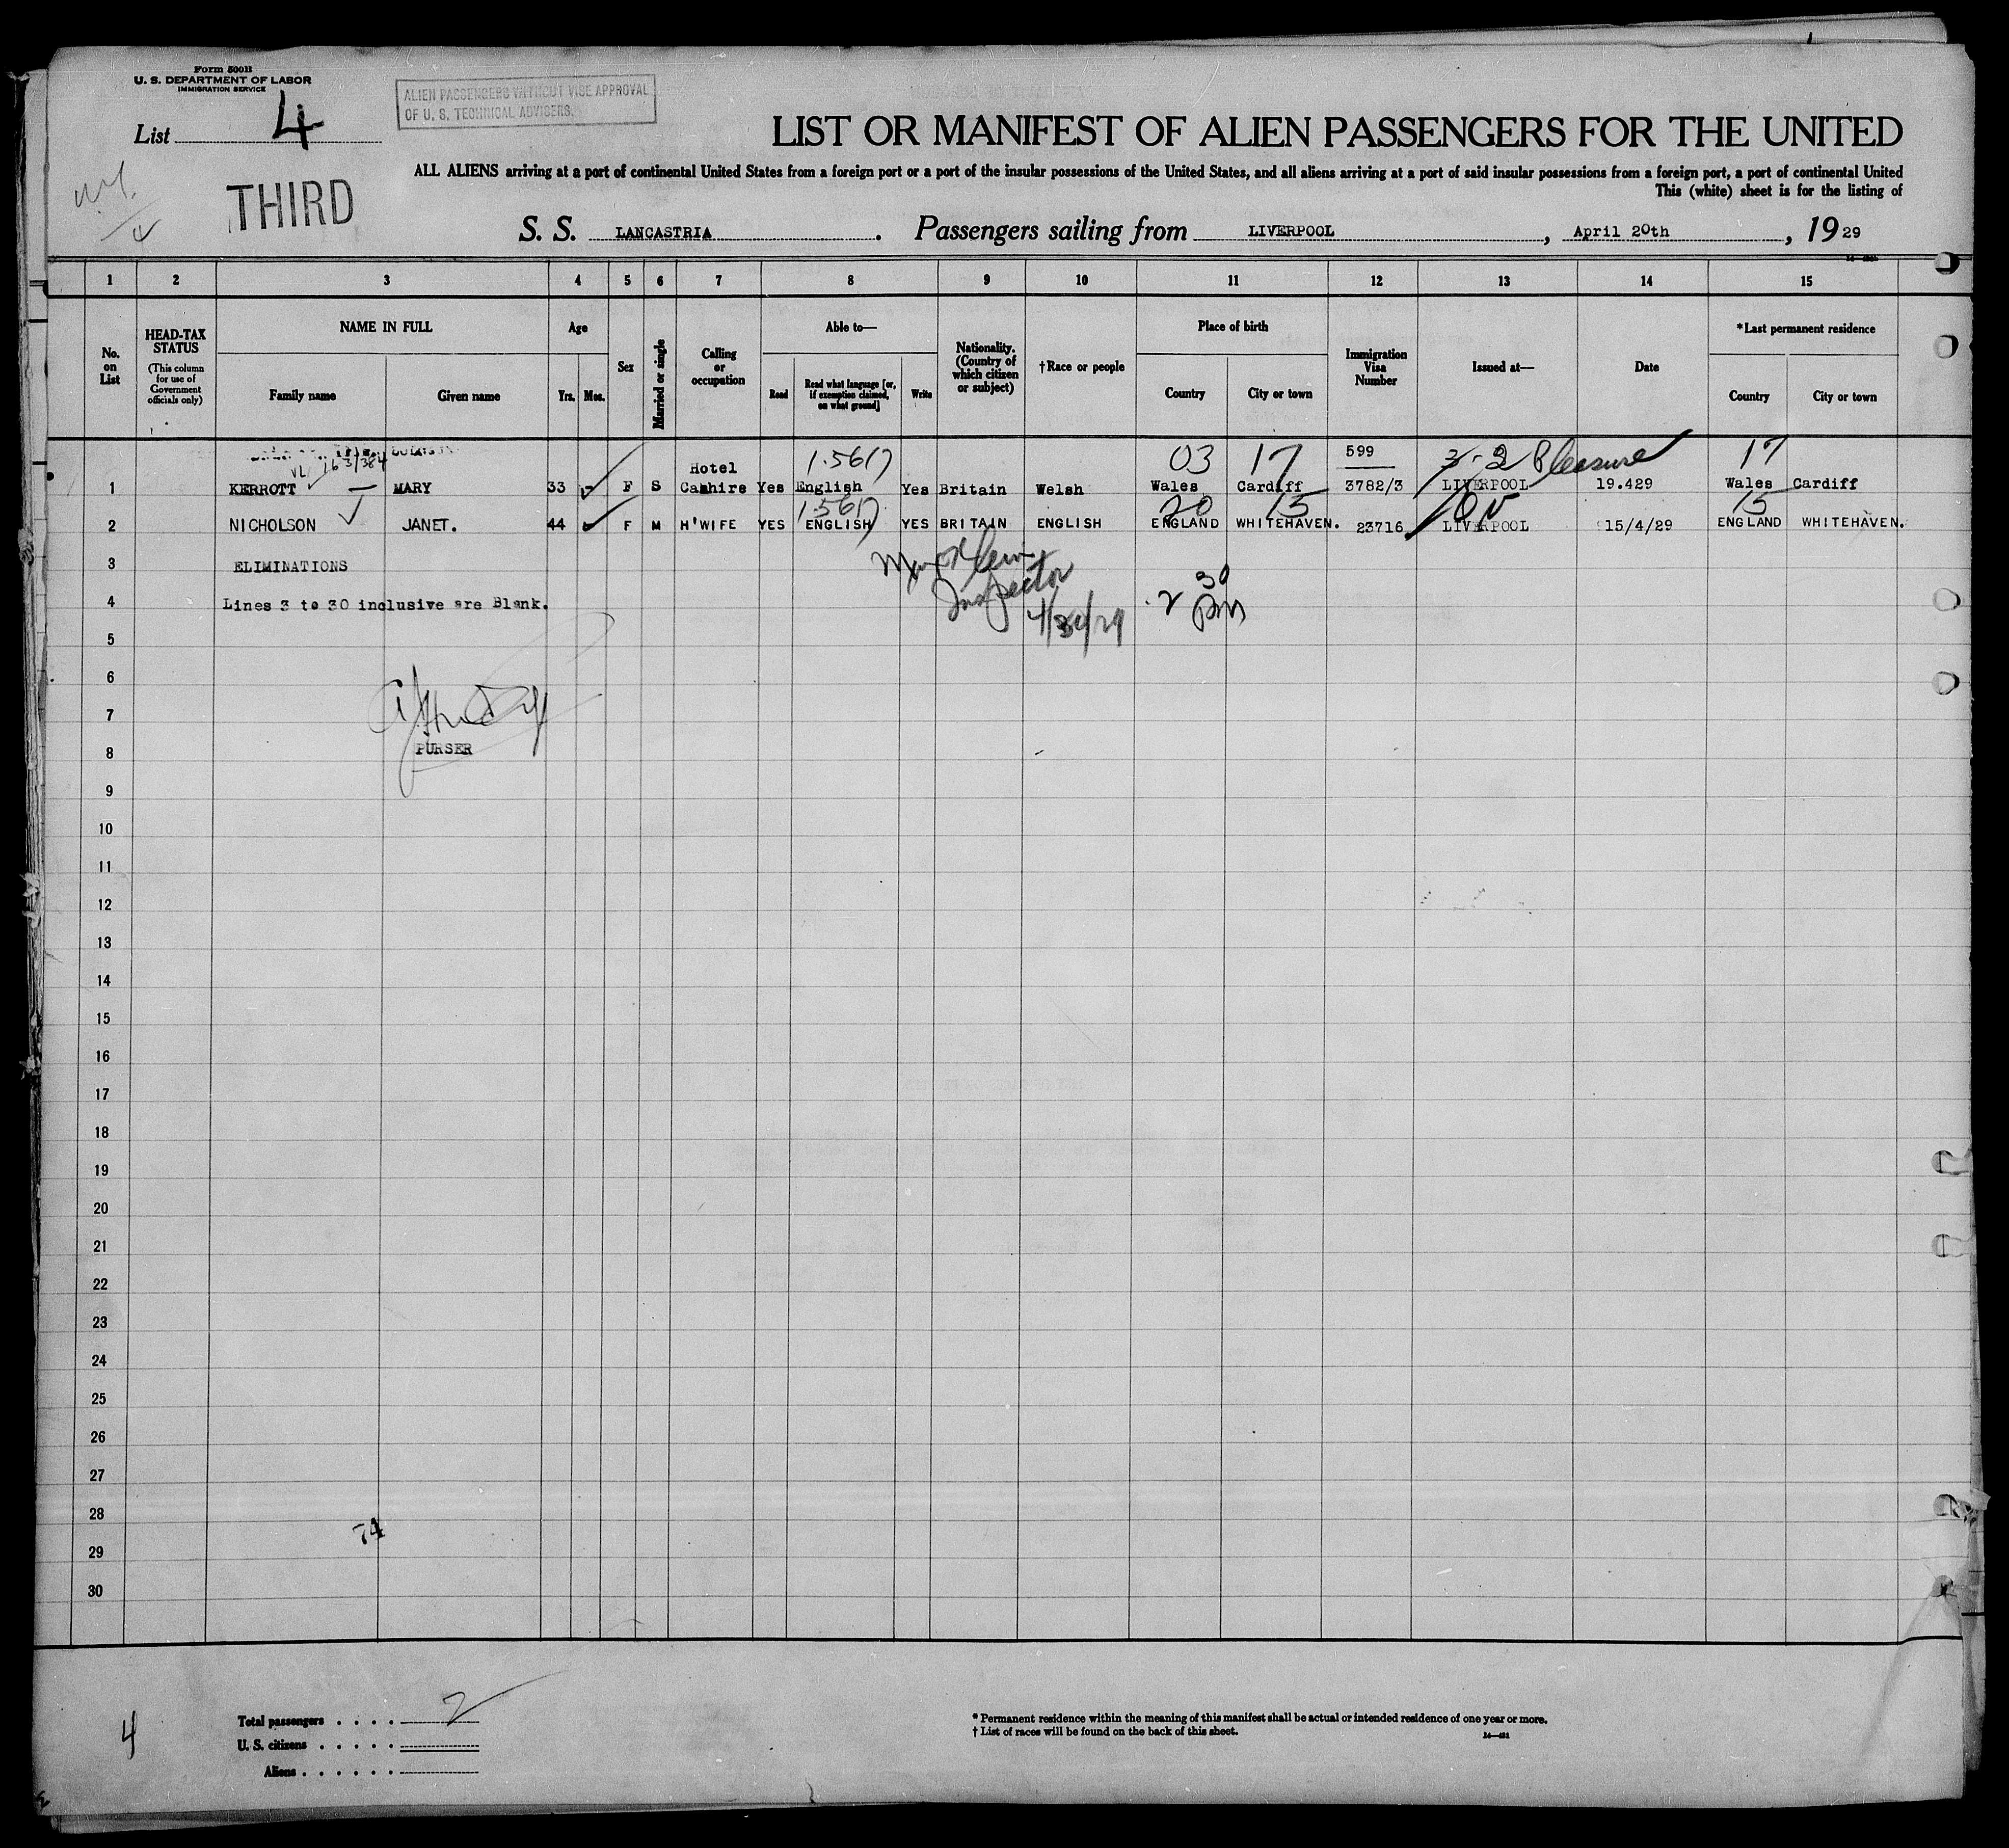 Form 500B
U. S. DEPARTMENT OF LABOR
IMMIGRATION SERVICE
ALIEN PASSENGERS WITHOUT VISE APPROVAL
OF U. S. TECHNICAL ADVISERS.
List 4
LIST OR MANIFEST OF ALIEN PASSENGERS FOR THE UNITED
ALL ALIENS arriving at a port of continental United States from a foreign port or a port of the insular possessions of the United States, and all aliens arriving at a port of said insular possessions from a foreign port, a port of continental United
This (white) sheet is for the listing of
THIRD
S. S. LANCASTRIA. Passengers sailing from LIVERPOOL, April 20th, 1929
1 2 3 4 5 6 7 8 9 10 11 12 13 14 15
No. on List
HEAD-TAX STATUS
(This column for use of Government officials only)
NAME IN FULL
Family name Given name
Age
Yrs. Mos.
Sex
Married or single
Calling or occupation
Able to—
Read
Read what language [or, if exemption claimed, on what ground]
Write
Nationality. (Country of which citizen or subject)
†Race or people
Place of birth
Country City or town
Immigration Visa Number
Issued at—
Date
*Last permanent residence
Country City or town
VL 163/384 1.5617 03 17 599 3-2 Pleasure 17
Hotel
1 KERROTT — MARY 33 - F S Cashire Yes English Yes Britain Welsh Wales Cardiff 3782/3 LIVERPOOL 19.429 Wales Cardiff
1.5617 20 15 15
2 NICHOLSON JANET. 44 F M H'WIFE YES ENGLISH YES BRITAIN ENGLISH ENGLAND WHITEHAVEN. 23716 LIVERPOOL 15/4/29 ENGLAND WHITEHAVEN.
3 ELIMINATIONS
4 Lines 3 to 30 inclusive are Blank.
Inspector
4/30/29
2 30 Pm
5
6
7
8 PURSER
9
10
11
12
13
14
15
16
17
18
19
20
21
22
23
24
25
26
27
28
74
29
30
4
Total passengers . . . . 2
U. S. citizens . . . . .
Aliens . . . . . .
* Permanent residence within the meaning of this manifest shall be actual or intended residence of one year or more.
† List of races will be found on the back of this sheet.